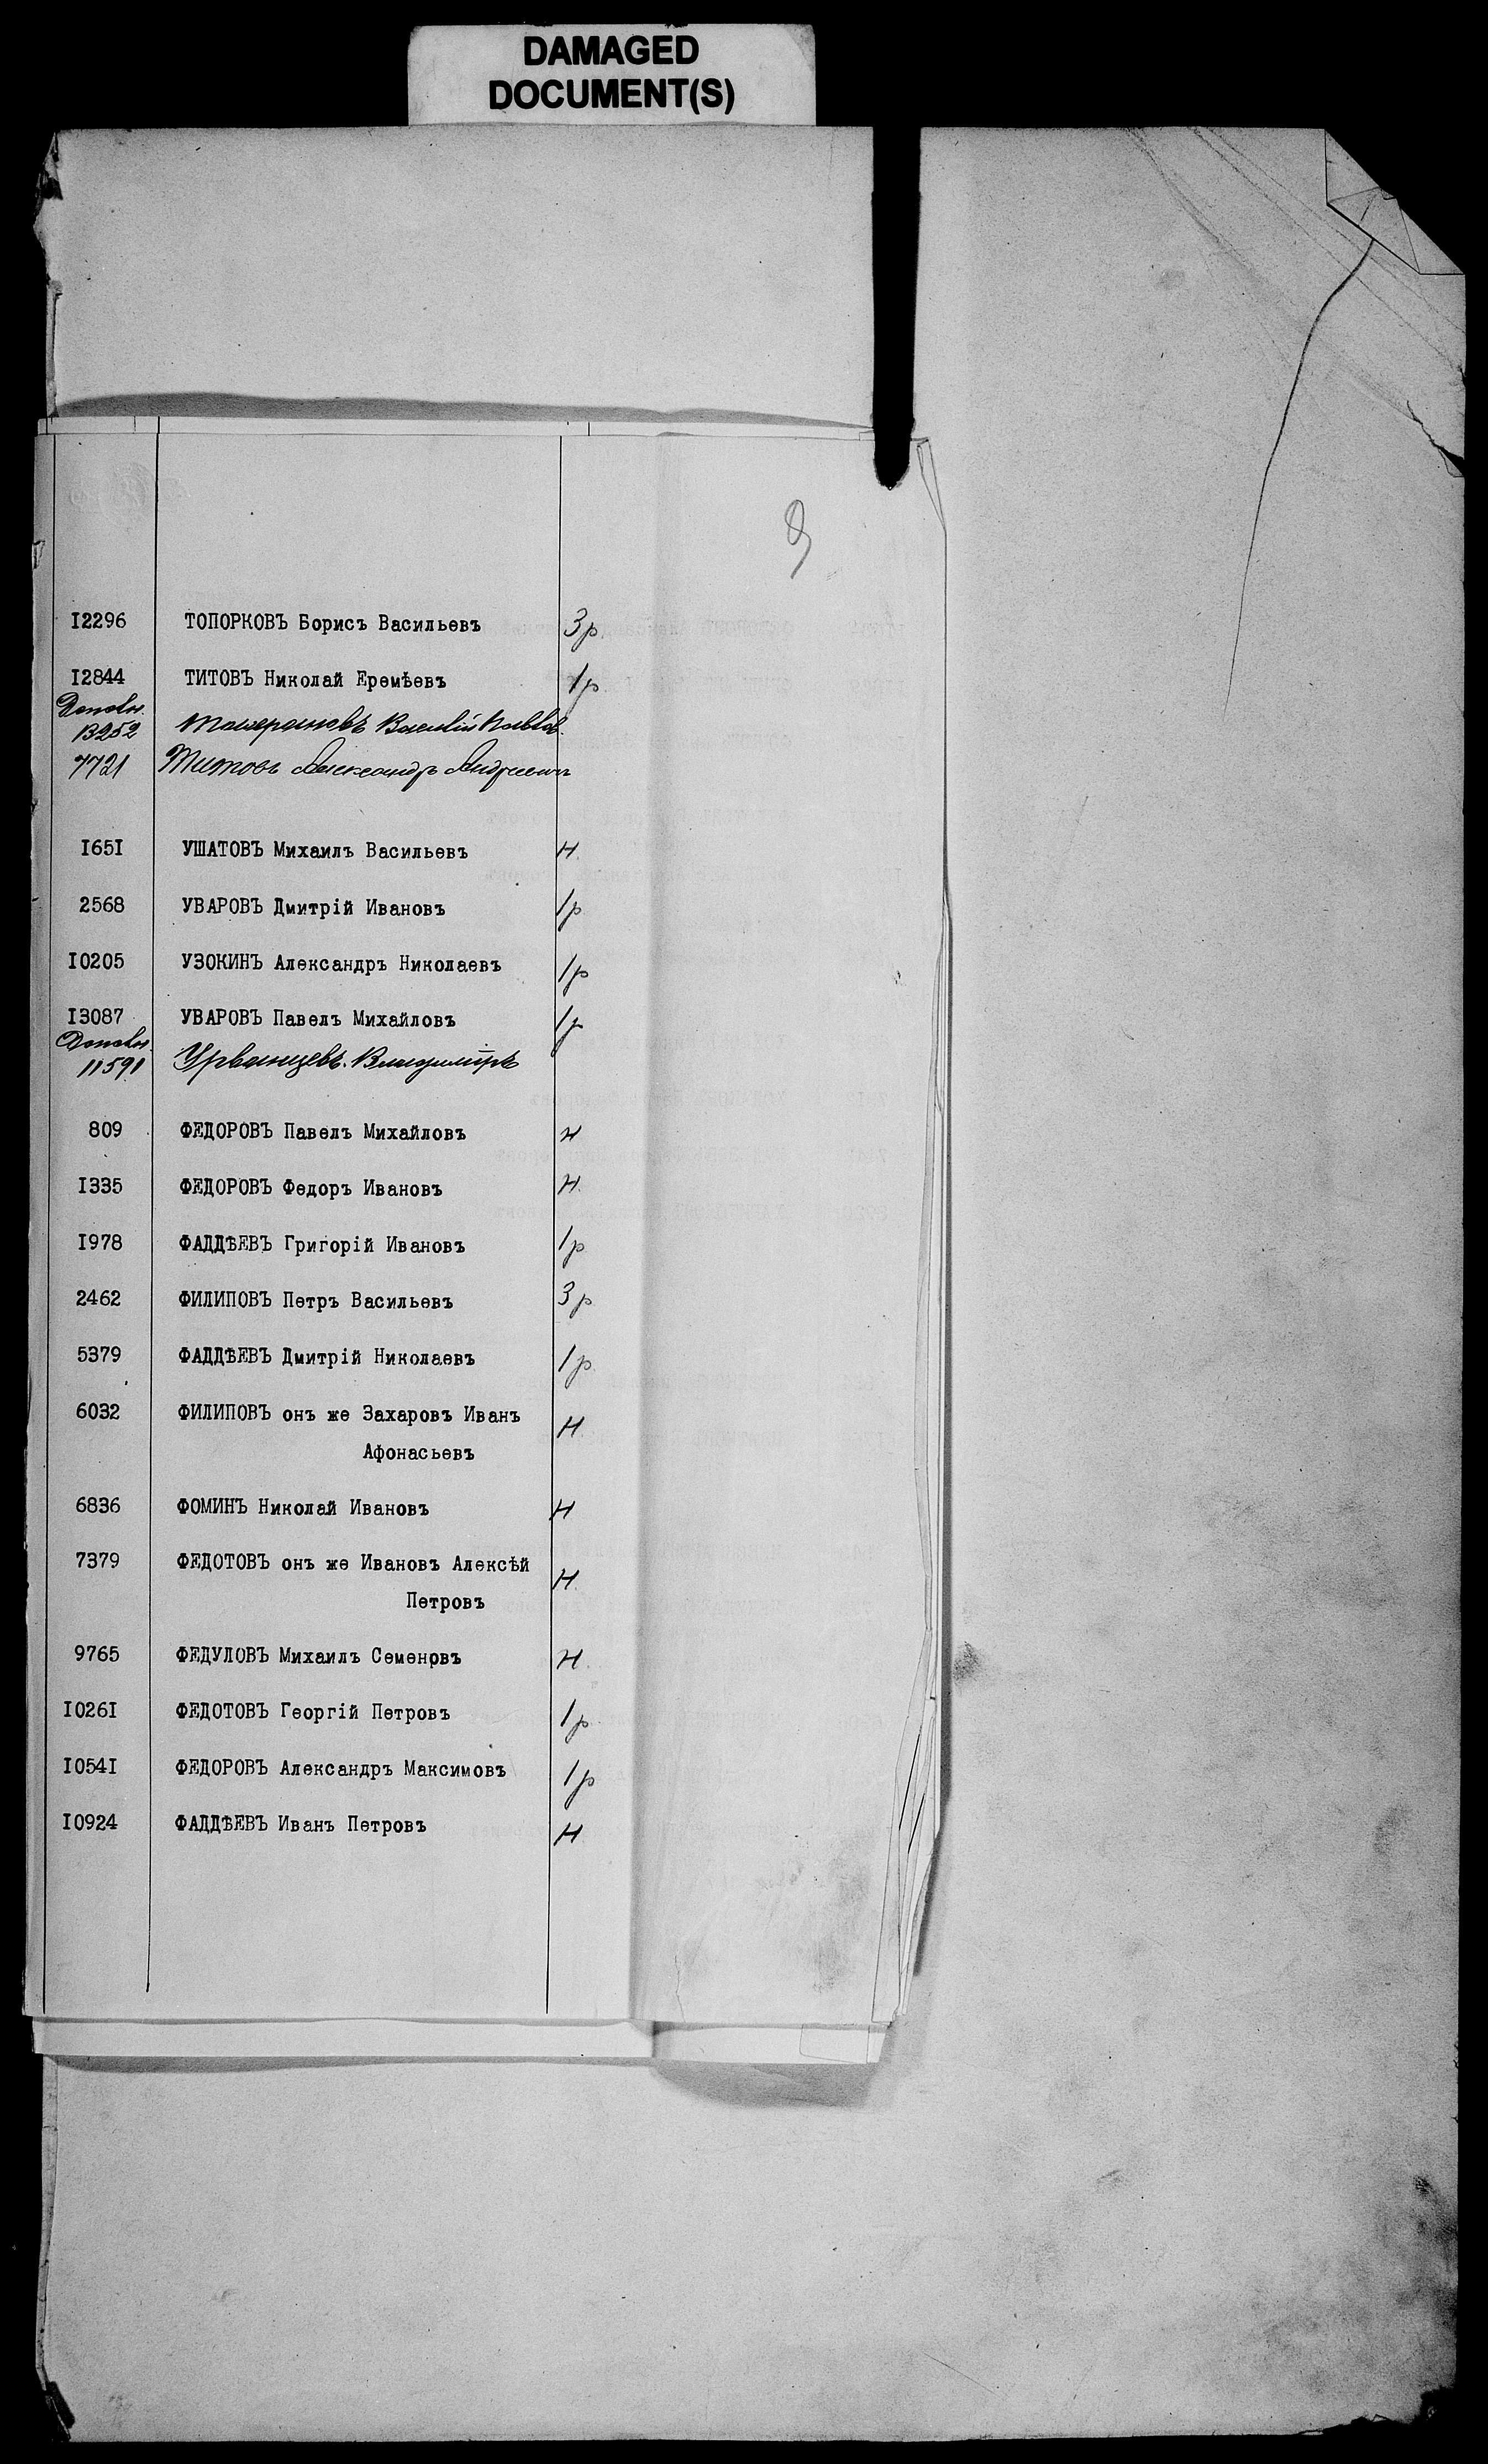 DAMAGED
DOCUMENT(S)
I2296 ТОПОРКОВЪ Борисъ Васильевъ 3р.
I2844 ТИТОВЪ Николай Еремѣевъ 1р
Дополн.
13252 Василій Павлов.
7721 Титовъ Александръ Андреевичъ
I65I УШАТОВЪ Михаилъ Васильевъ Н.
2568 УВАРОВЪ Дмитрій Ивановъ 1р
I0205 УЗОКИНЪ Александръ Николаевъ 1р
I3087 УВАРОВЪ Павелъ Михайловъ 1р
Дополн.
11591 Урванцевъ Владиміръ
809 ФЕДОРОВЪ Павелъ Михайловъ Н
I335 ФЕДОРОВЪ Федоръ Ивановъ Н.
I978 ФАДДѢЕВЪ Григорій Ивановъ 1р
2462 ФИЛИПОВЪ Петръ Васильевъ 3р
5379 ФАДДѢЕВЪ Дмитрій Николаевъ 1р.
6032 ФИЛИПОВЪ онъ же Захаровъ Иванъ Н
Афонасьевъ
6836 ФОМИНЪ Николай Ивановъ Н
7379 ФЕДОТОВЪ онъ же Ивановъ Алексѣй Н.
Петровъ
9765 ФЕДУЛОВЪ Михаилъ Семеновъ Н.
I026I ФЕДОТОВЪ Георгій Петровъ 1р.
I054I ФЕДОРОВЪ Александръ Максимовъ 1р
I0924 ФАДДѢЕВЪ Иванъ Петровъ Н